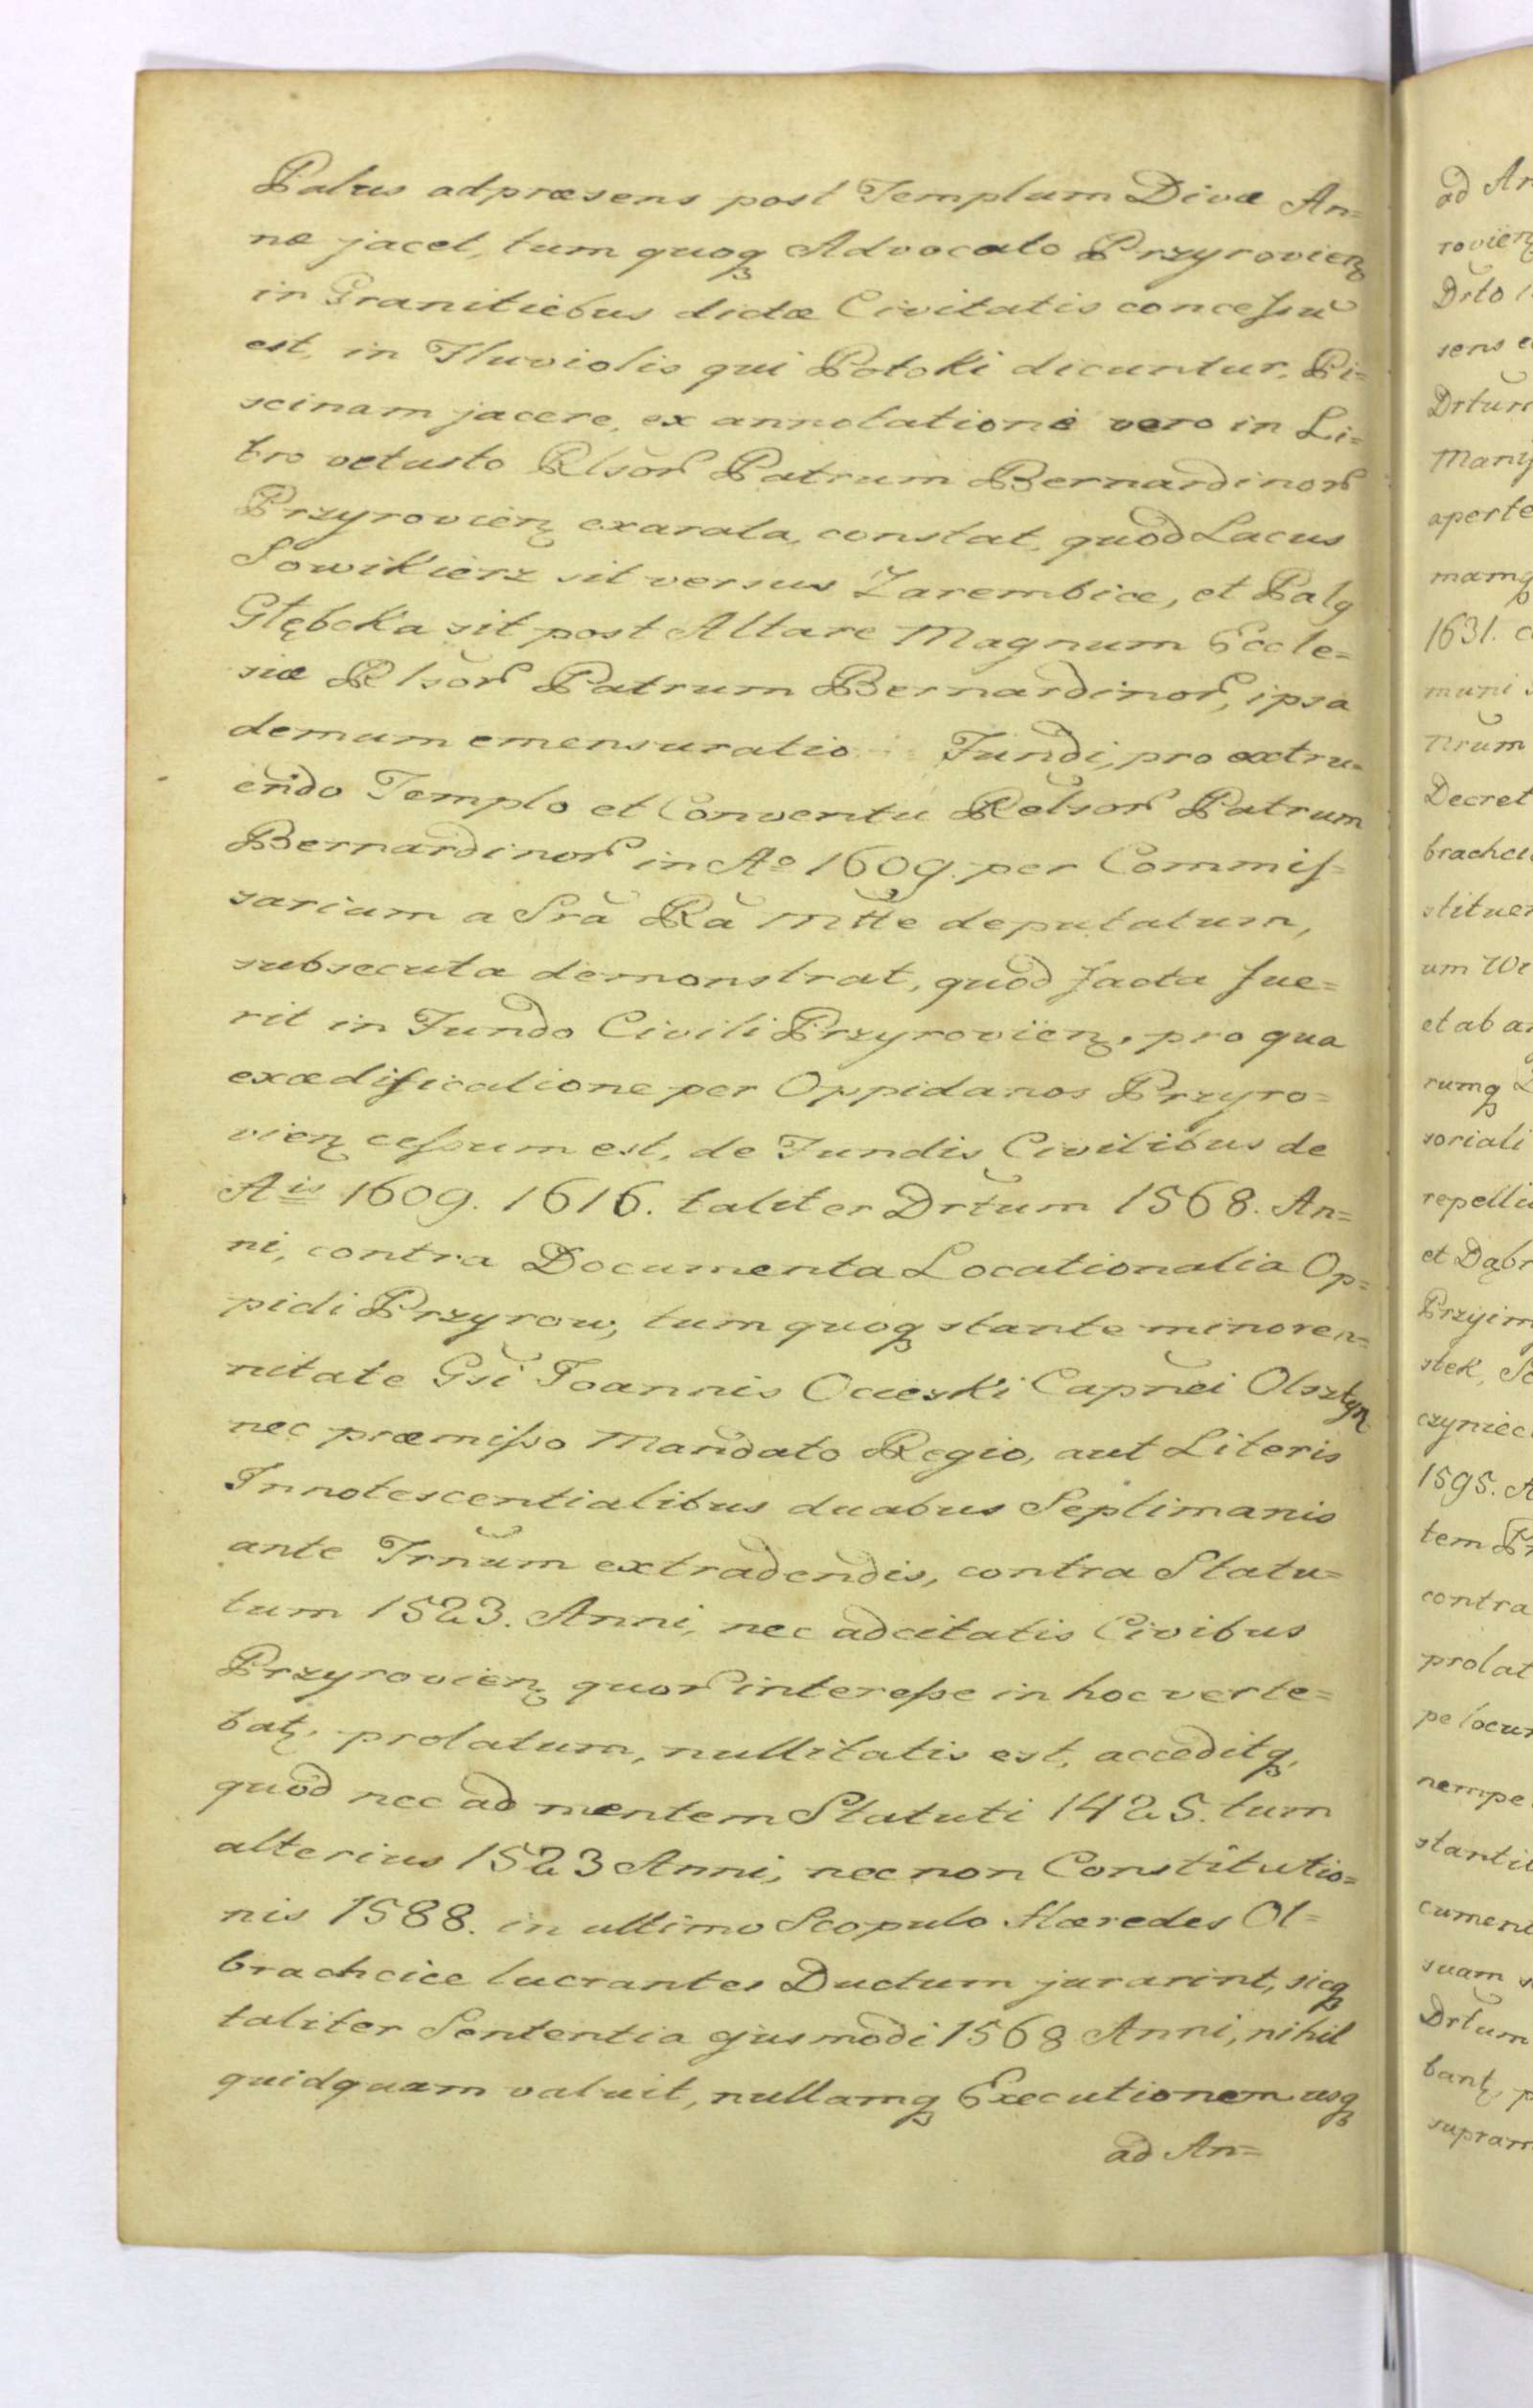 Palus ad præsens post Templum Divæ An=
næ jacet, tum quoq Advocato Przyrovien
in Granitiebus dictæ Civitatis concessũ
est, in Fluviolis qui Potoki dicuntur, Pi=
scinam jacere, ex annotatione vero in Li=
bro vetusto Rlsor Patrum Bernardinor
Przyrovien exarata, constat, quod Lacus
Sowikierz sit versus Zarembice, et Palg
Głęboka sit post Altare Magnum Eccle=
siæ Rlsor Patrum Bernardinor, ipsa
demum emensuratio Fundi, pro extru=
endo Templo et Conventu Relsor Patrum
Bernardinor in Aº 1609. per Commis=
sarium a Sra Ra Mtte deputatum,
subsecuta demonstrat, quod facta fue=
rit in Fundo Civili Przyrovien, pro qua
exædificatione per Oppidanos Przyro=
vien cessum est, de Fundis Civilibus de
Ais 1609. 1616. taliter Drtum 1568. An=
ni, contra Documenta Locationalia Op=
pidi Przyrow, tum quoq stante minoren=
nitate Gsi Joannis Ocieski Capnei Olsztyn
nec præmisso Mandato Regio, aut Literis
Innotescentialibus duabus Septimanis
ante Trnum extradendis, contra Statu=
tum 1523. Anni, nec adcitatis Civibus
Przyrovien quor interesse in hoc verte=
bat, prolatum, nullitatis est, acceditq,
quod nec ad mentem Statuti 1425. tum
alterius 1523 Anni, nec non Constitutio=
nis 1588. in ultimo Scopulo Hæredes Ol=
brachcice lucrantes Ductum jurarint, sicq
taliter Sententia ejusmodi 1568 Anni, nihil
quidquam valuit, nullamq Executionem usq
ad An=
ad An
rovien
Drto
sens
Drtum
Mani
aperte
mamq
1631.
muni
Trnum
Decret
brachci
stituen
um
et ab
rumq
soriali
repelli
et Dąbr
Przyim
stek,
czyniec
1595. A
tem Pr
contra
prolat
pe locum
nempe
stanti
cument
suam
Drtum
bant,
supram